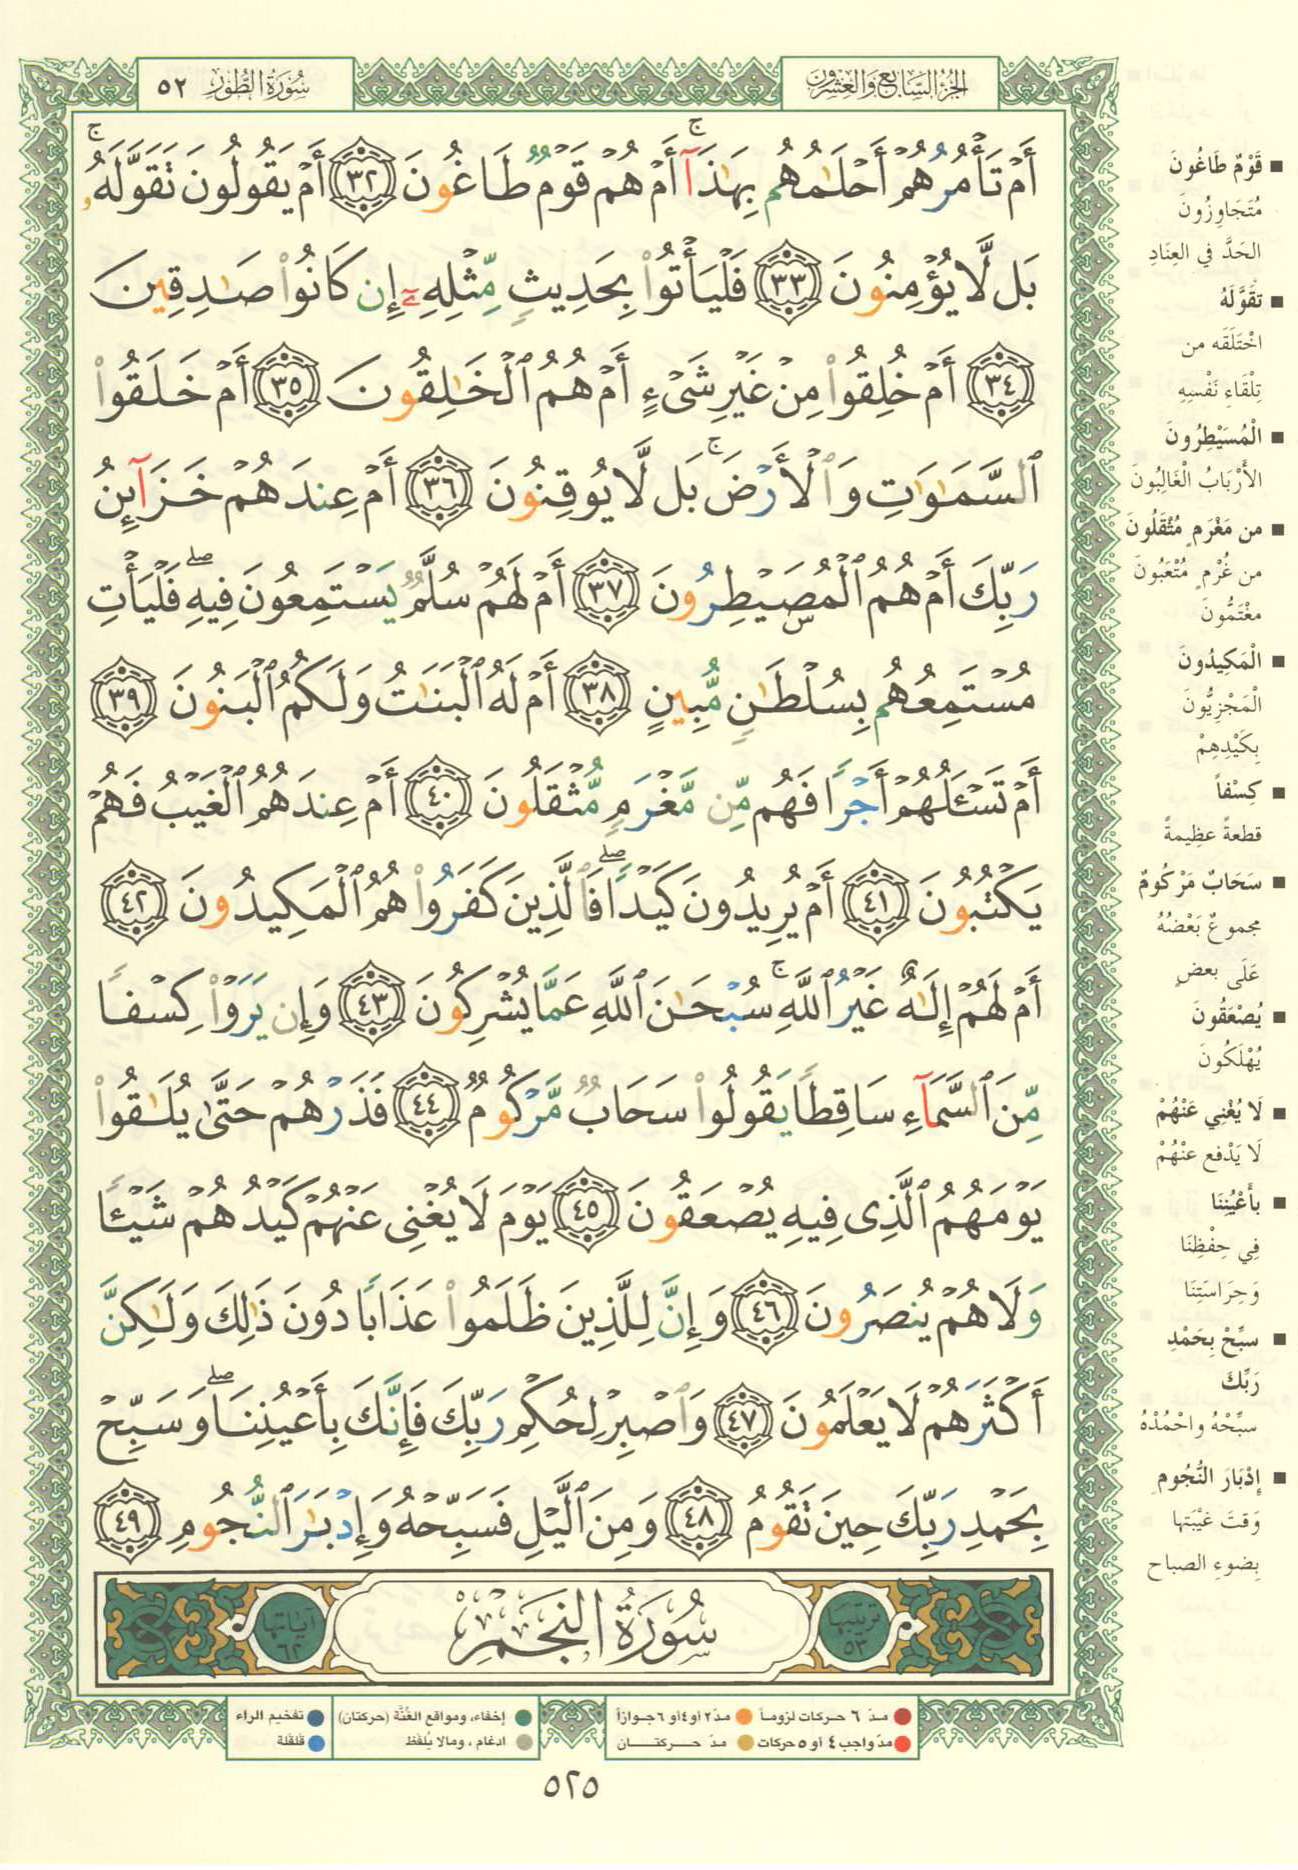 سُورَةُ الطُّورِ ٥٢
الجُزءُ السَّابِعُ وَالعِشْرُونَ
أَمْ تَأْمُرُهُمْ أَحْلَٰمُهُم بِهَٰذَآ ۚ أَمْ هُمْ قَوْمٌ طَاغُونَ ٣٢ أَمْ يَقُولُونَ تَقَوَّلَهُۥ ۚ
بَل لَّا يُؤْمِنُونَ ٣٣ فَلْيَأْتُوا۟ بِحَدِيثٍ مِّثْلِهِۦٓ إِن كَانُوا۟ صَٰدِقِينَ
٣٤ أَمْ خُلِقُوا۟ مِنْ غَيْرِ شَىْءٍ أَمْ هُمُ ٱلْخَٰلِقُونَ ٣٥ أَمْ خَلَقُوا۟
ٱلسَّمَٰوَٰتِ وَٱلْأَرْضَ ۚ بَل لَّا يُوقِنُونَ ٣٦ أَمْ عِندَهُمْ خَزَآئِنُ
رَبِّكَ أَمْ هُمُ ٱلْمُصَۣيْطِرُونَ ٣٧ أَمْ لَهُمْ سُلَّمٌ يَسْتَمِعُونَ فِيهِ ۖ فَلْيَأْتِ
مُسْتَمِعُهُم بِسُلْطَٰنٍ مُّبِينٍ ٣٨ أَمْ لَهُ ٱلْبَنَٰتُ وَلَكُمُ ٱلْبَنُونَ ٣٩
أَمْ تَسْـَٔلُهُمْ أَجْرًا فَهُم مِّن مَّغْرَمٍ مُّثْقَلُونَ ٤٠ أَمْ عِندَهُمُ ٱلْغَيْبُ فَهُمْ
يَكْتُبُونَ ٤١ أَمْ يُرِيدُونَ كَيْدًا ۖ فَٱلَّذِينَ كَفَرُوا۟ هُمُ ٱلْمَكِيدُونَ ٤٢
أَمْ لَهُمْ إِلَٰهٌ غَيْرُ ٱللَّهِ ۚ سُبْحَٰنَ ٱللَّهِ عَمَّا يُشْرِكُونَ ٤٣ وَإِن يَرَوْا۟ كِسْفًا
مِّنَ ٱلسَّمَآءِ سَاقِطًا يَقُولُوا۟ سَحَابٌ مَّرْكُومٌ ٤٤ فَذَرْهُمْ حَتَّىٰ يُلَٰقُوا۟
يَوْمَهُمُ ٱلَّذِى فِيهِ يُصْعَقُونَ ٤٥ يَوْمَ لَا يُغْنِى عَنْهُمْ كَيْدُهُمْ شَيْـًٔا
وَلَا هُمْ يُنصَرُونَ ٤٦ وَإِنَّ لِلَّذِينَ ظَلَمُوا۟ عَذَابًا دُونَ ذَٰلِكَ وَلَٰكِنَّ
أَكْثَرَهُمْ لَا يَعْلَمُونَ ٤٧ وَٱصْبِرْ لِحُكْمِ رَبِّكَ فَإِنَّكَ بِأَعْيُنِنَا ۖ وَسَبِّحْ
بِحَمْدِ رَبِّكَ حِينَ تَقُومُ ٤٨ وَمِنَ ٱلَّيْلِ فَسَبِّحْهُ وَإِدْبَٰرَ ٱلنُّجُومِ ٤٩
ترتيبها ٥٣
سُورَةُ النَّجْمِ
آياتها ٦٢
قَوْمٌ طَاغُونَ
مُتَجَاوِزُونَ
الحَدَّ في العِنَادِ
تَقَوَّلَهُ
اخْتَلَقَه من
تِلْقَاءِ نَفْسِهِ
الْمُسَيْطِرُونَ
الأَرْبَابُ الْغَالِبُونَ
من مَغْرَمٍ مُثْقَلُونَ
من غُرْمٍ مُتْعَبُونَ
مغْتَمُّونَ
الْمَكِيدُونَ
الْمَجْزِيُّونَ
بِكَيْدِهِمْ
كِسْفاً
قطعةً عظِيمةً
سَحَابٌ مَرْكُومٌ
مجموعٌ بَعْضُهُ
عَلَى بعضٍ
يُصْعَقُونَ
يُهْلَكُونَ
لَا يُغْنِي عَنْهُمْ
لَا يَدْفع عنْهُمْ
بأَعْيُنِنَا
فِي حِفْظِنَا
وَحِرَاسَتِنَا
سبِّحْ بِحَمْدِ
رَبِّكَ
سبِّحْهُ واحْمُدْهُ
إِدْبَارَ النُّجُومِ
وَقتَ غيْبَتِها
بِضوءِ الصباح
مدّ ٦ حركات لزوماً
مدّ ٢ أو ٤ أو ٦ جوازاً
مدّ واجب ٤ أو ٥ حركات
مدّ حركتان
إخفاء، ومواقع الغُنَّة (حركتان)
ادغام ، ومالا يُلفَظ
تفخيم الراء
قلقلة
٥٢٥